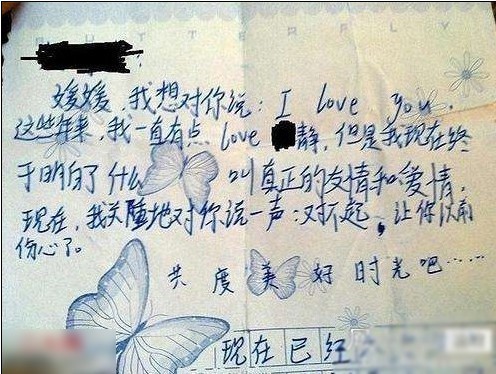 BUTTERFLY
媛媛,我想对你说:I love you.
这些年来,我一直有点 love 静,但是我现在终
于明白了什么叫真正的友情和爱情,
现在,我关隆地对你说一声:对不起,让你以前
伤心了。
共度美好时光吧……
现在已经